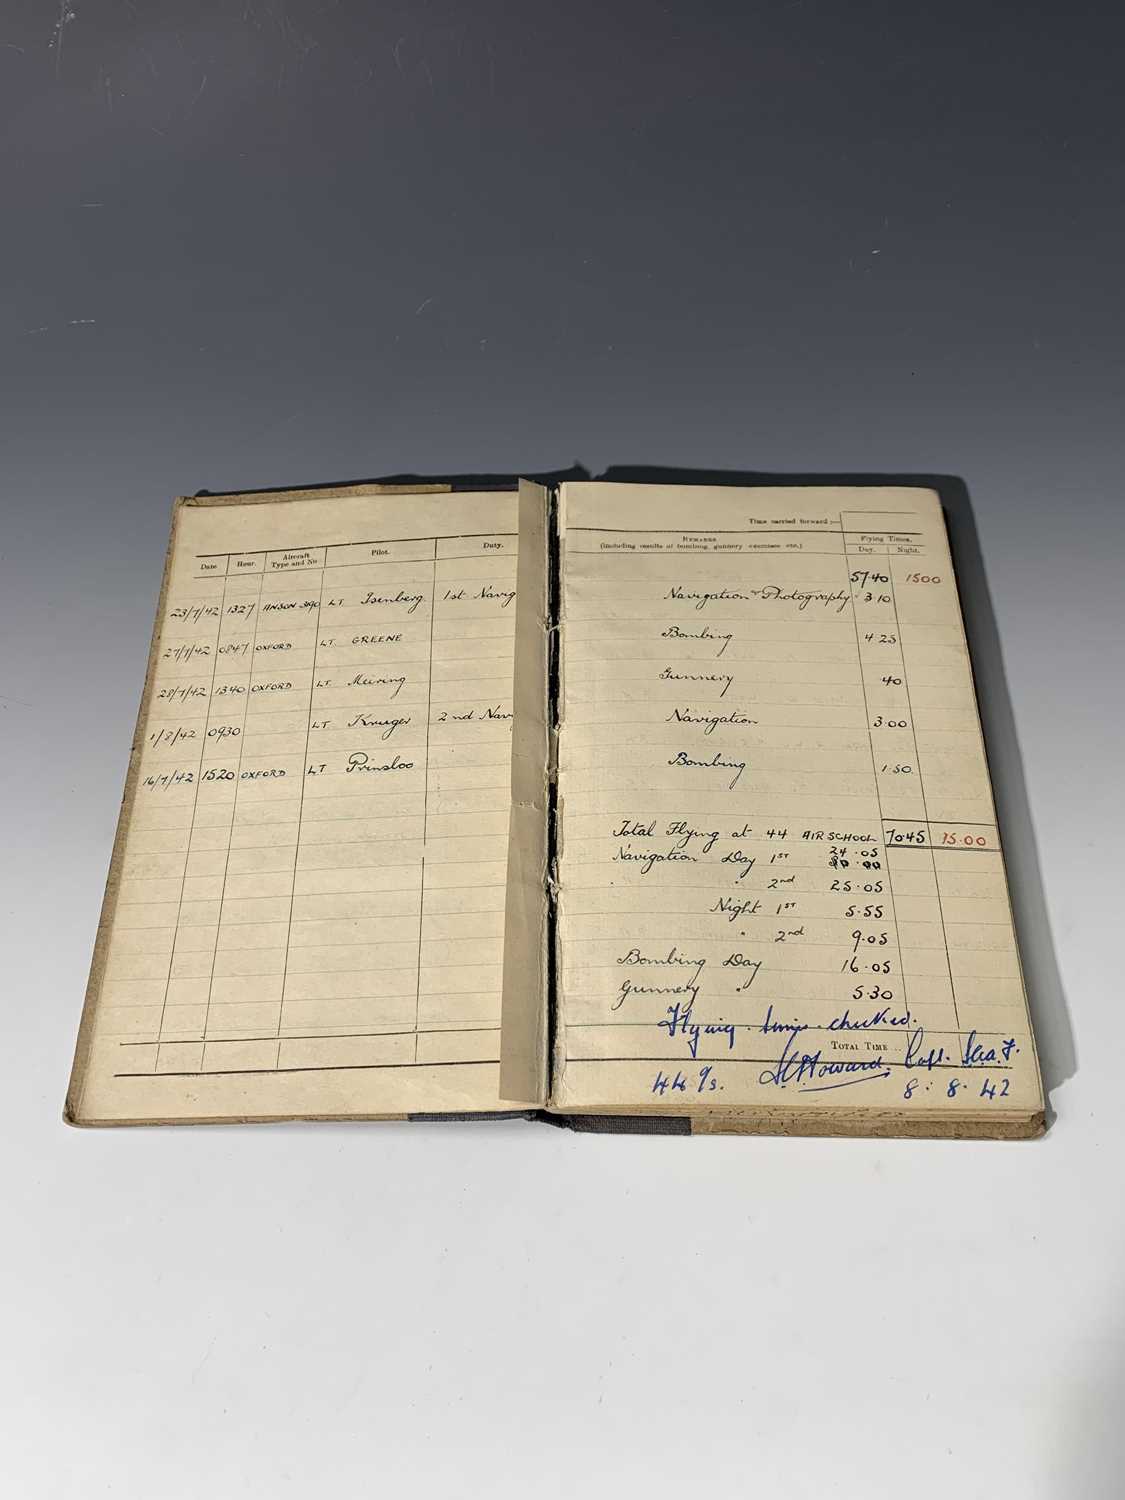 Date Hour. Aircraft Type and No Pilot. Duty.
23/7/42 1327 ANSON 3190 LT Isenberg. 1st Navig
27/7/42 0847 OXFORD LT. GREENE
28/7/42 1340 OXFORD LT. Meiring
1/8/42 0930 LT Kruger 2nd Nav
16/7/42 1520 OXFORD LT Prinsloo
Time carried forward :—
REMARKS Flying Times.
(including results of bombing, gunnery exercises etc.) Day. Night.
57.40 1500
Navigation & Photography 3.10
Bombing 4 25
Gunnery .40
Navigation 3.00
Bombing 1.50.
Total Flying at 44 AIR SCHOOL 70.45 15.00
24.05
Navigation Day 1ST
" " 2nd 25.05
Night 1ST 5.55
" 2nd 9.05
Bombing Day 16.05
Gunnery " 5.30
Flying times checked.
TOTAL TIME ..
Howard. Capt.
8. 8. 42